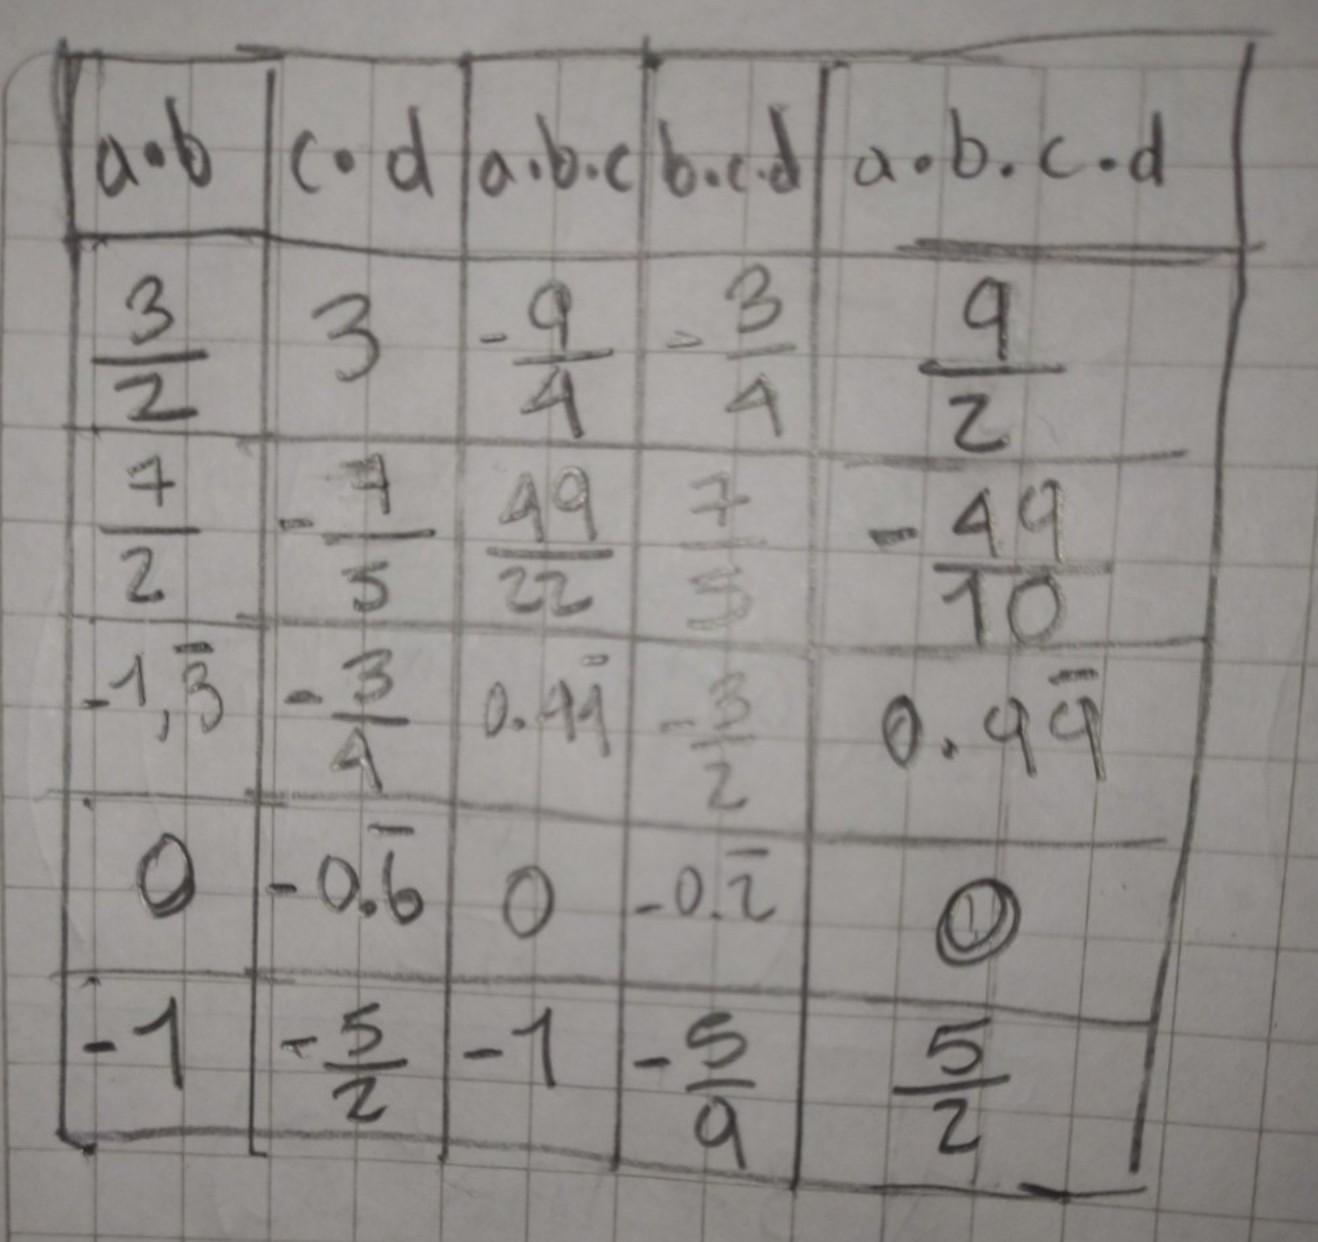 a·b | c·d | a.b.c | b.c.d | a.b.c.d
3/2 | 3 | -9/4 | -3/4 | 9/2
7/2 | -7/5 | 49/22 | 7/5 | -49/10
-1,3̄ | -3/4 | 0.49̄ | -3/2 | 0.99̄
0 | -0.6̄ | 0 | -0.2̄ | 0
-1 | -5/2 | -1 | -5/9 | 5/2